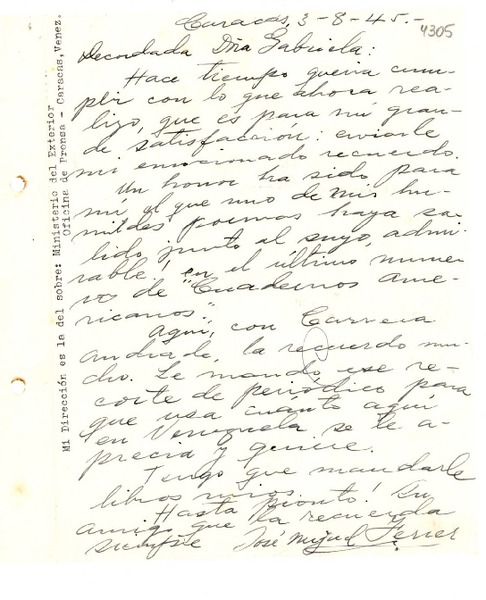 Caracas, 3-8-45.-
4305
Recordada Dña Gabriela:
Hace tiempo quería cum-
plir con lo que ahora rea-
lizo, que es para mí gran-
de satisfacción: enviarle
mi emocionado recuerdo.
Un honor ha sido para
mí, el que uno de mis hu-
mildes poemas haya sa-
lido junto al suyo, admi-
rable! en el último nume-
ros de "Cuadernos Ame-
ricanos".
Aquí, con Carrera
Andrade, la recuerdo mu-
cho. Le mando ese re-
corte de periódico para
que vea cuanto aquí
en Venezuela se le a-
precia y quiere.
Tengo que mandarle
libros míos.
Hasta pronto! Su
amigo que la recuerda
siempre José Miguel Ferrer
Mi Dirección es la del sobre: Ministerio del Exterior
Oficina de Prensa - Caracas, Venez.